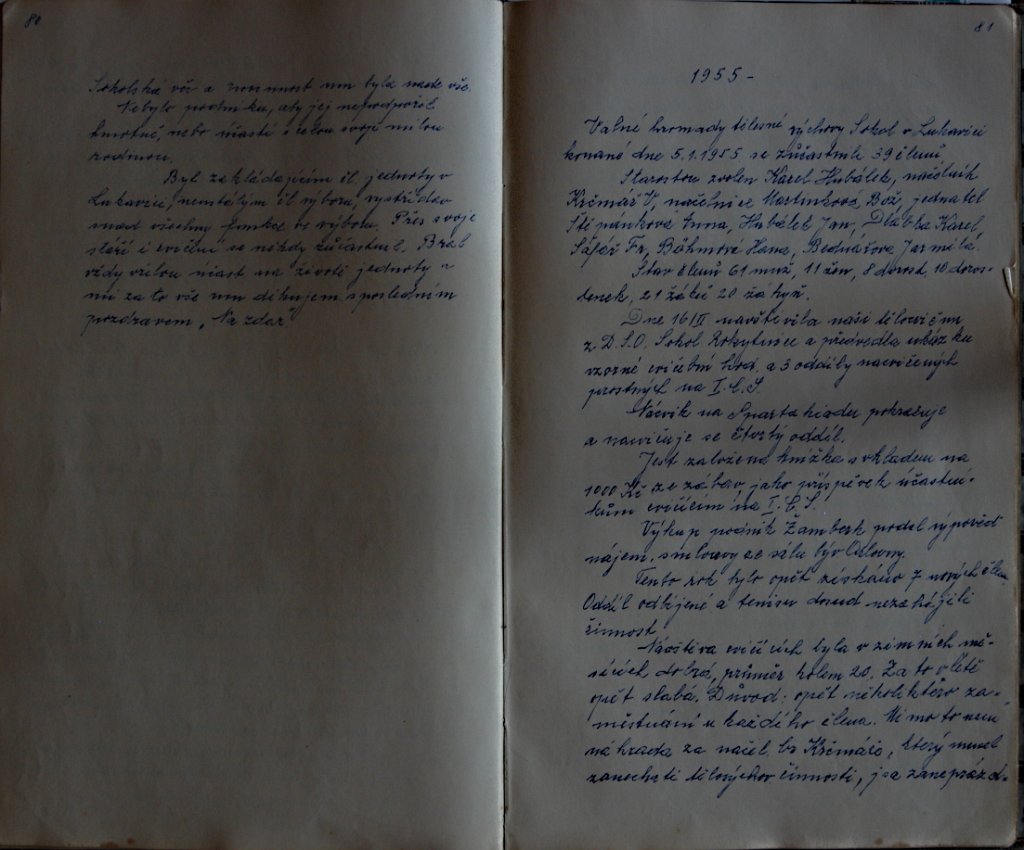 80
Sokolská věc a rovnost mu byla nade vše.
Nebylo podniku, aby jej nepodpořil
hmotně, nebo účastí s celou svojí milou
rodinou.
Byl zakládajícím čl. jednoty v
Lukavici, neustálým čl výboru, vystřídav
snad všechny funkce ve výboru. Přes svoje
stáří i cvičení se někdy zúčastnil. Bral
vždy vřelou účast na životě jednoty a
my za to vše mu děkujem s posledním
pozdravem „Na zdar"
81
1955 -
Valné hromady tělesné výchovy Sokol v Lukavici
konané dne 5.1.1955 se zůčastnili 39 členů
Starostou zvolen Karel Hubálek, náčelník
Krčmář V, náčelnice Martinková Bož, jednatel
Štěpánková Anna, Hubálek Jan, Dlabka Karel,
Šáfář Fr, Böhmová Hana, Bednářova Jarmila.
Stav členů 61 muž, 11 žen, 8 dorost, 10 doros-
tenek, 21 žáků 20 žákyň.
Dne 16/II navštívila naši tělocvičnu
z D.S.O. Sokol Rokytnice a předvedla ukázku
vzorné cvičební hod. a 3 oddíly nacvičených
prostných na I.C.S.
Nácvik na Spartakiadu pokračuje
a nacvičuje se čtvrtý oddíl.
Jest založena knížka s vkladem na
1000 Kč ze zábav jako příspěvek účastní-
kům cvičícím na I.C.S.
Výkup. podnik Žamberk podal výpověď
nájem. smlouvy ze sálu býv Orlovny.
Tento rok bylo opět získáno 7 nových členů
Oddíl odbíjené a tenisu dosud nezahájili
činnost
Návštěva cvičících byla v zimních mě-
sících dobrá, průměr kolem 20. Za to v létě
opět slabá. Důvod: opět několikteré za-
městnání u každého člena. Mimo to není
náhrada za náčel. br Krčmáře, který musel
zanechati tělovýchov činnosti, jsa zaneprázd-